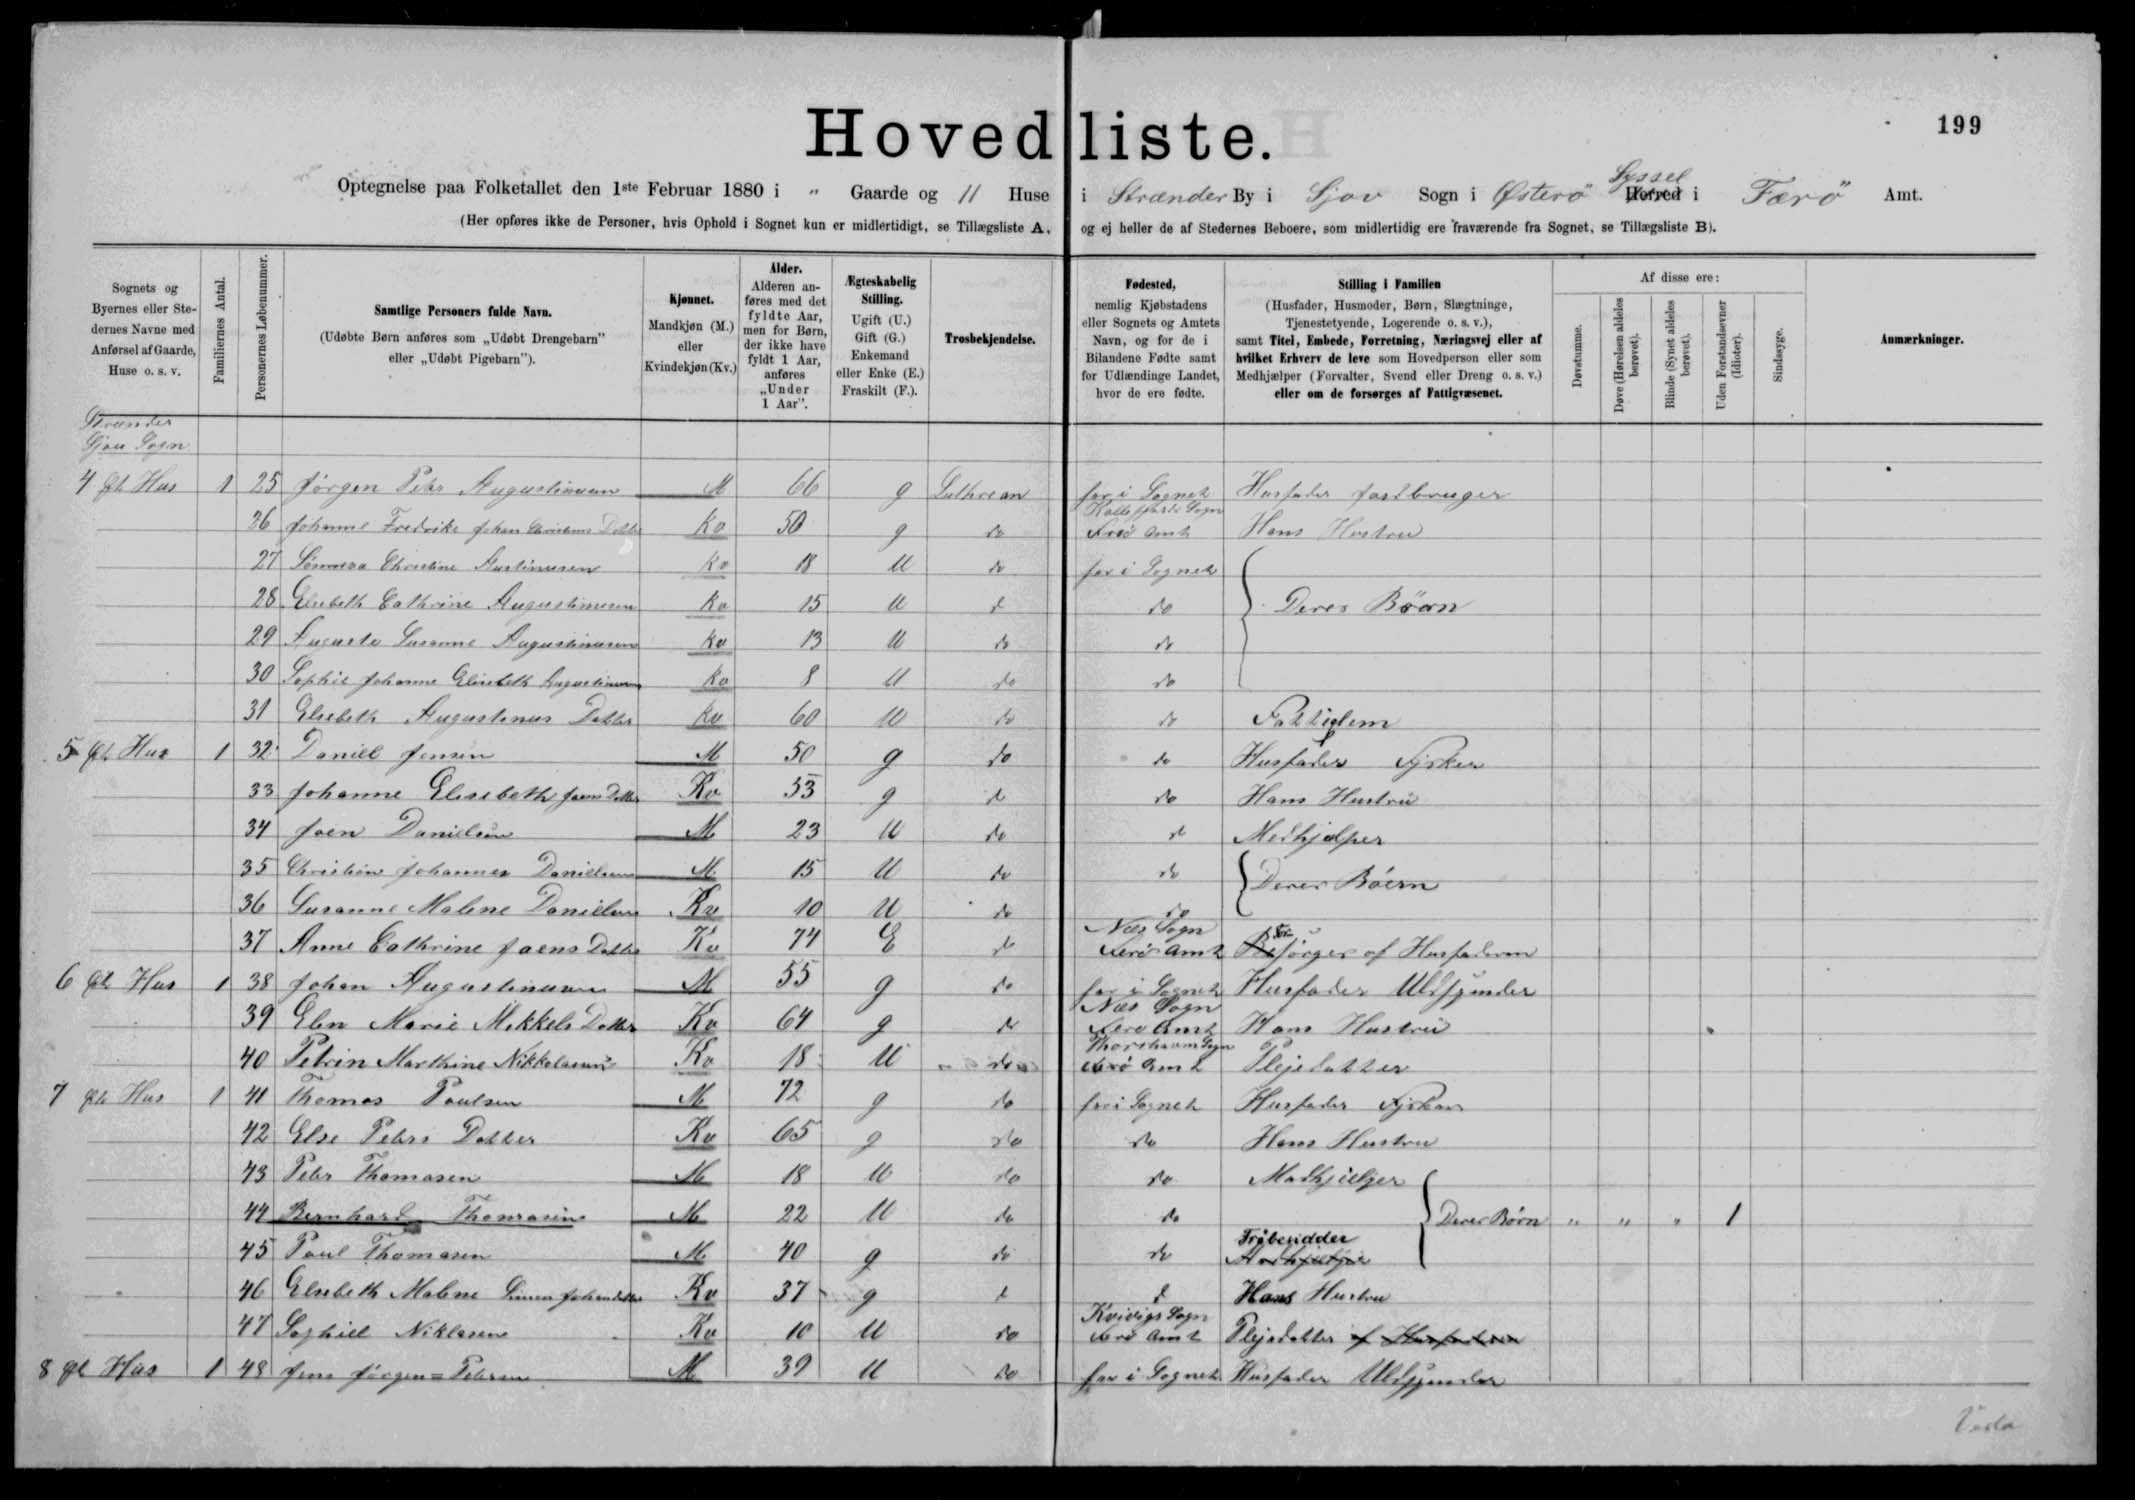 Hovedliste.
199
Optegnelse paa Folketallet den 1ste Februar 1880 i " Gaarde og 11 Huse i Strænder By i Sjov Sogn i Østerö Herred Syssel i Færö Amt.
(Her opføres ikke de Personer, hvis Ophold i Sognet kun er midlertidigt, se Tillægsliste A, og ej heller de af Stedernes Beboere, som midlertidig ere fraværende fra Sognet, se Tillægsliste B).
Sognets og Byernes eller Stedernes Navne med Anførsel af Gaarde, Huse o. s. v.
Familiernes Antal.
Personernes Løbenummer.
Samtlige Personers fulde Navn.
(Udøbte Børn anføres som „Udøbt Drengebarn" eller „Udøbt Pigebarn").
Kjønnet.
Mandkjøn (M.) eller Kvindekjøn (Kv.)
Alder.
Alderen anføres med det fyldte Aar, men for Børn, der ikke have fyldt 1 Aar, anføres „Under 1 Aar".
Ægteskabelig Stilling.
Ugift (U.) Gift (G.) Enkemand eller Enke (E.) Fraskilt (F.).
Trosbekjendelse.
Fødested,
nemlig Kjøbstadens eller Sognets og Amtets Navn, og for de i Bilandene Fødte samt for Udlændinge Landet, hvor de ere fødte.
Stilling i Familien
(Husfader, Husmoder, Børn, Slægtninge, Tjenestetyende, Logerende o. s. v.), samt Titel, Embede, Forretning, Næringsvej eller af hvilket Erhverv de leve som Hovedperson eller som Medhjælper (Forvalter, Svend eller Dreng o. s. v.) eller om de forsørges af Fattigvæsenet.
Af disse ere:
Døvstumme.
Døve (Hørelsen aldeles berøvet).
Blinde (Synet aldeles berøvet).
Uden Forstandsevner (Idioter).
Sindssyge.
Anmærkninger.
Strænder
Sjov Sogn
4 Hus 1 25 Jørgen Peter Augustinusen M 66 g Luthrean i Sognet Husfader Jordbruger
26 Johanne Fredrike Johan Christians Datter Kv 50 g do Sogn Færö Amt Hans Hustru
27 Christine Kv 18 U do i Sognet
28 Elsebeth Cathrine Augustinusen Kv 15 U d do Deres Börn
29 Augusta Susanne Augustinusen Kv 13 U do do
30 Sophie Johanne Elisebeth Augustinusen Kv 8 U do do
31 Elsebeth Augustinus Datter Kv 60 U do do Fattiglem
5 Hus 1 32 Daniel Jensen M 50 g do do Husfader Fisker
33 Johanne Elisebeth Joens Datter Kv 53 g d do Hans Hustru
34 Joen Danielsen M 23 U do d Medhjælper
35 Christian Johannes Danielsen M 15 U do do Deres Böern
36 Susanne Malene Danielsen Kv 10 U do do
37 Anne Cathrine Joens Datter Kv 74 E d Næs Sogn Færö Amt Forsörges af Husfaderen
6 Hus 1 38 Johan Augustinusen M 55 g do i Sognet Husfader Uldspinder
39 Elen Marie Mikkels Datter Kv 64 g d Næs Sogn Færö Amt Hans Hustru
40 Petrin Marthine Nikkolasen Kv 18 U do Thorshavn Sogn Færö Amt Plejedatter
7 Hus 1 41 Thomas Poulsen M 72 g do i Sognet Husfader Fisker
42 Else Peters Datter Kv 65 g do do Hans Hustru
43 Peter Thomasen M 18 U do do Medhjielper
44 Bernhard Thomasen M 22 U do do Deres Börn " " " 1
45 Poul Thomasen M 40 g do do
46 Elsebeth Malene Simon Johansdatter Kv 37 g d d Hans Hustru
47 Sophie Niklasen Kv 10 U do Kvivigs Sogn Færö Amt Plejedatter af Husfaderen
8 Hus 1 48 Jens Jörgen=Petersen M 39 U do i Sognet Husfader Uldspinder